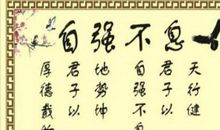 自强不息
天行健
君子以
自强不
地势坤
君子以
厚德载